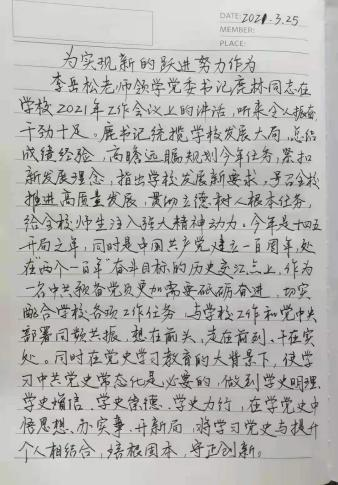 DATE: 2021.3.25
MEMBER:
PLACE:
为实现新的跃进努力作为
李岳松老师领学党委书记庹林同志在
学校2021年工作会议上的讲话,听来令人振奋
干劲十足。庹书记统揽学校发展大局,总结
成绩经验,高瞻远瞩规划今年任务,紧扣
新发展理念,指出学校发展新要求,号召全校
推进高质量发展,贯彻立德树人根本任务,
给全校师生注入强大精神动力。今年是十四五
开局之年,同时是中国共产党建立一百周年,处
在“两个一百年”奋斗目标的历史交汇点上,作为
一名中共预备党员更加需要砥砺奋进,切实
配合学校各项工作任务,与学校工作和党中央
部署同频共振,想在前头、走在前列、干在实
处。同时在党史学习教育的大背景下,使学
习中共党史常态化是必要的,做到学史明理
学史增信、学史崇德、学史力行,在学党史中
悟思想、办实事、开新局,将学习党史与提升
个人相结合,培根固本,守正创新。